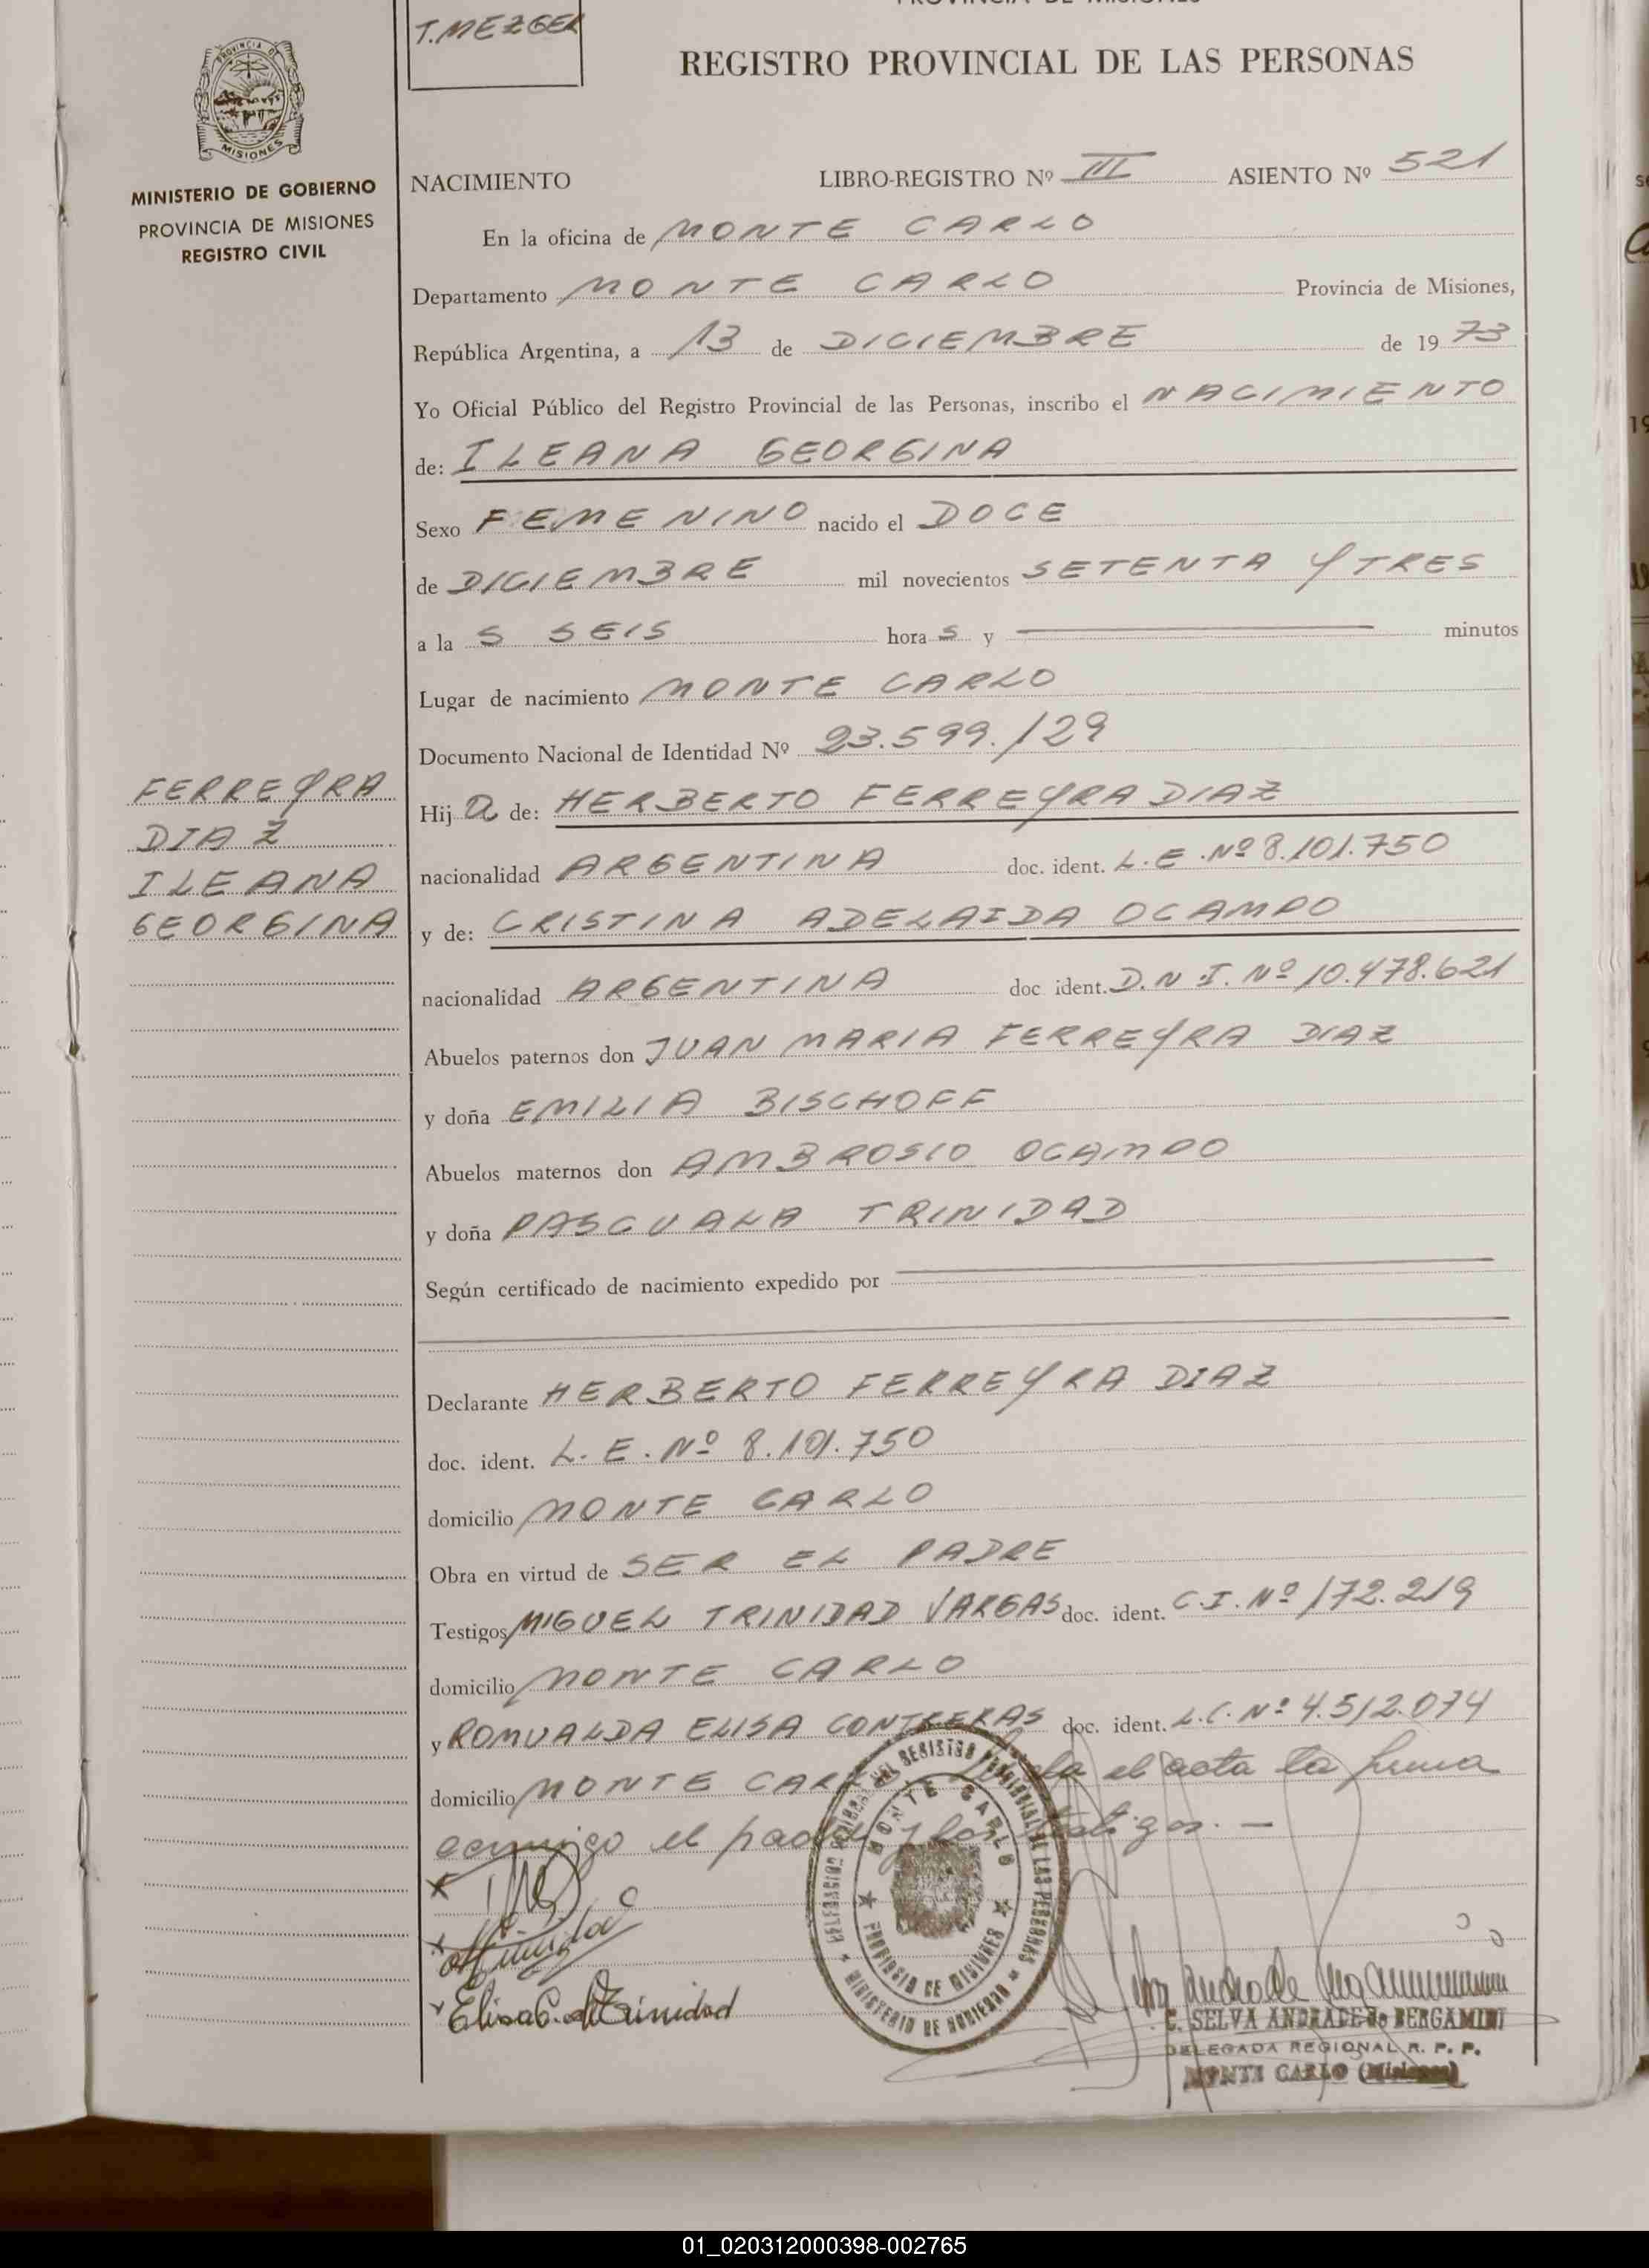 T. MEZGER
REGISTRO PROVINCIAL DE LAS PERSONAS
PROVINCIA DE
MISIONES
MINISTERIO DE GOBIERNO
PROVINCIA DE MISIONES
REGISTRO CIVIL
NACIMIENTO LIBRO-REGISTRO Nº III ASIENTO Nº 521
En la oficina de MONTE CARLO
Departamento MONTE CARLO Provincia de Misiones,
República Argentina, a 13 de DICIEMBRE de 1973
Yo Oficial Público del Registro Provincial de las Personas, inscribo el NACIMIENTO
de: ILEANA GEORGINA
Sexo FEMENINO nacido el DOCE
de DICIEMBRE mil novecientos SETENTA Y TRES
a la S SEIS hora S y minutos
Lugar de nacimiento MONTE CARLO
Documento Nacional de Identidad Nº 23.599.129
FERREYRA
DIAZ
ILEANA
GEORGINA
Hij a de: HERBERTO FERREYRA DIAZ
nacionalidad ARGENTINA doc. ident. L.E. Nº 8.101.750
y de: CRISTINA ADELAIDA OCAMPO
nacionalidad ARGENTINA doc ident. D.N.I. Nº 10.478.621
Abuelos paternos don JUAN MARIA FERREYRA DIAZ
y doña EMILIA BISCHOFF
Abuelos maternos don AMBROSIO OCAMPO
y doña PASCUALA TRINIDAD
Según certificado de nacimiento expedido por
Declarante HERBERTO FERREYRA DIAZ
doc. ident. L.E. Nº 8.101.750
domicilio MONTE CARLO
Obra en virtud de SER EL PADRE
Testigos MIGUEL TRINIDAD VARGAS doc. ident. C.I. Nº 172.219
domicilio MONTE CARLO
y ROMUALDA ELISA CONTRERAS doc. ident. L.C. Nº 4.512.074
domicilio MONTE CARLO el acta la firma
conmigo el padre y los testigos. —
MONTE CARLO
PROVINCIA DE MISIONES
MINISTERIO DE GOBIERNO
Elisa C. de Trinidad
C. SELVA ANDRADE de BERGAMINI
DELEGADA REGIONAL R. P. P.
MONTE CARLO (Misiones)
01_020312000398-002765